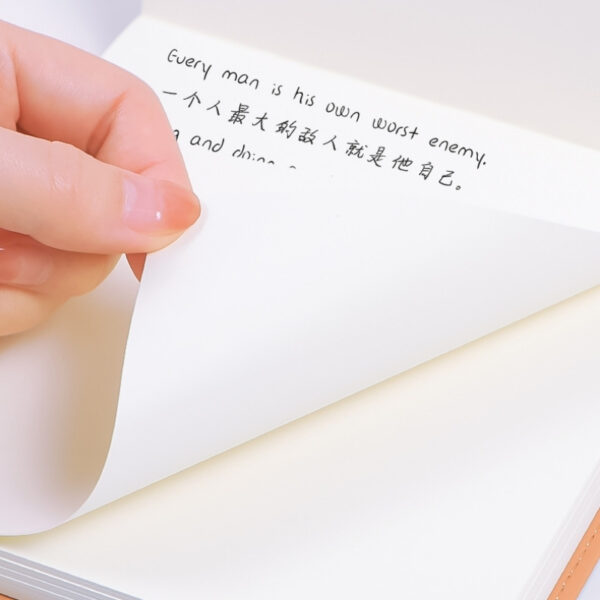 Every man is his own worst enemy.
一个人最大的敌人就是他自己。
and doing